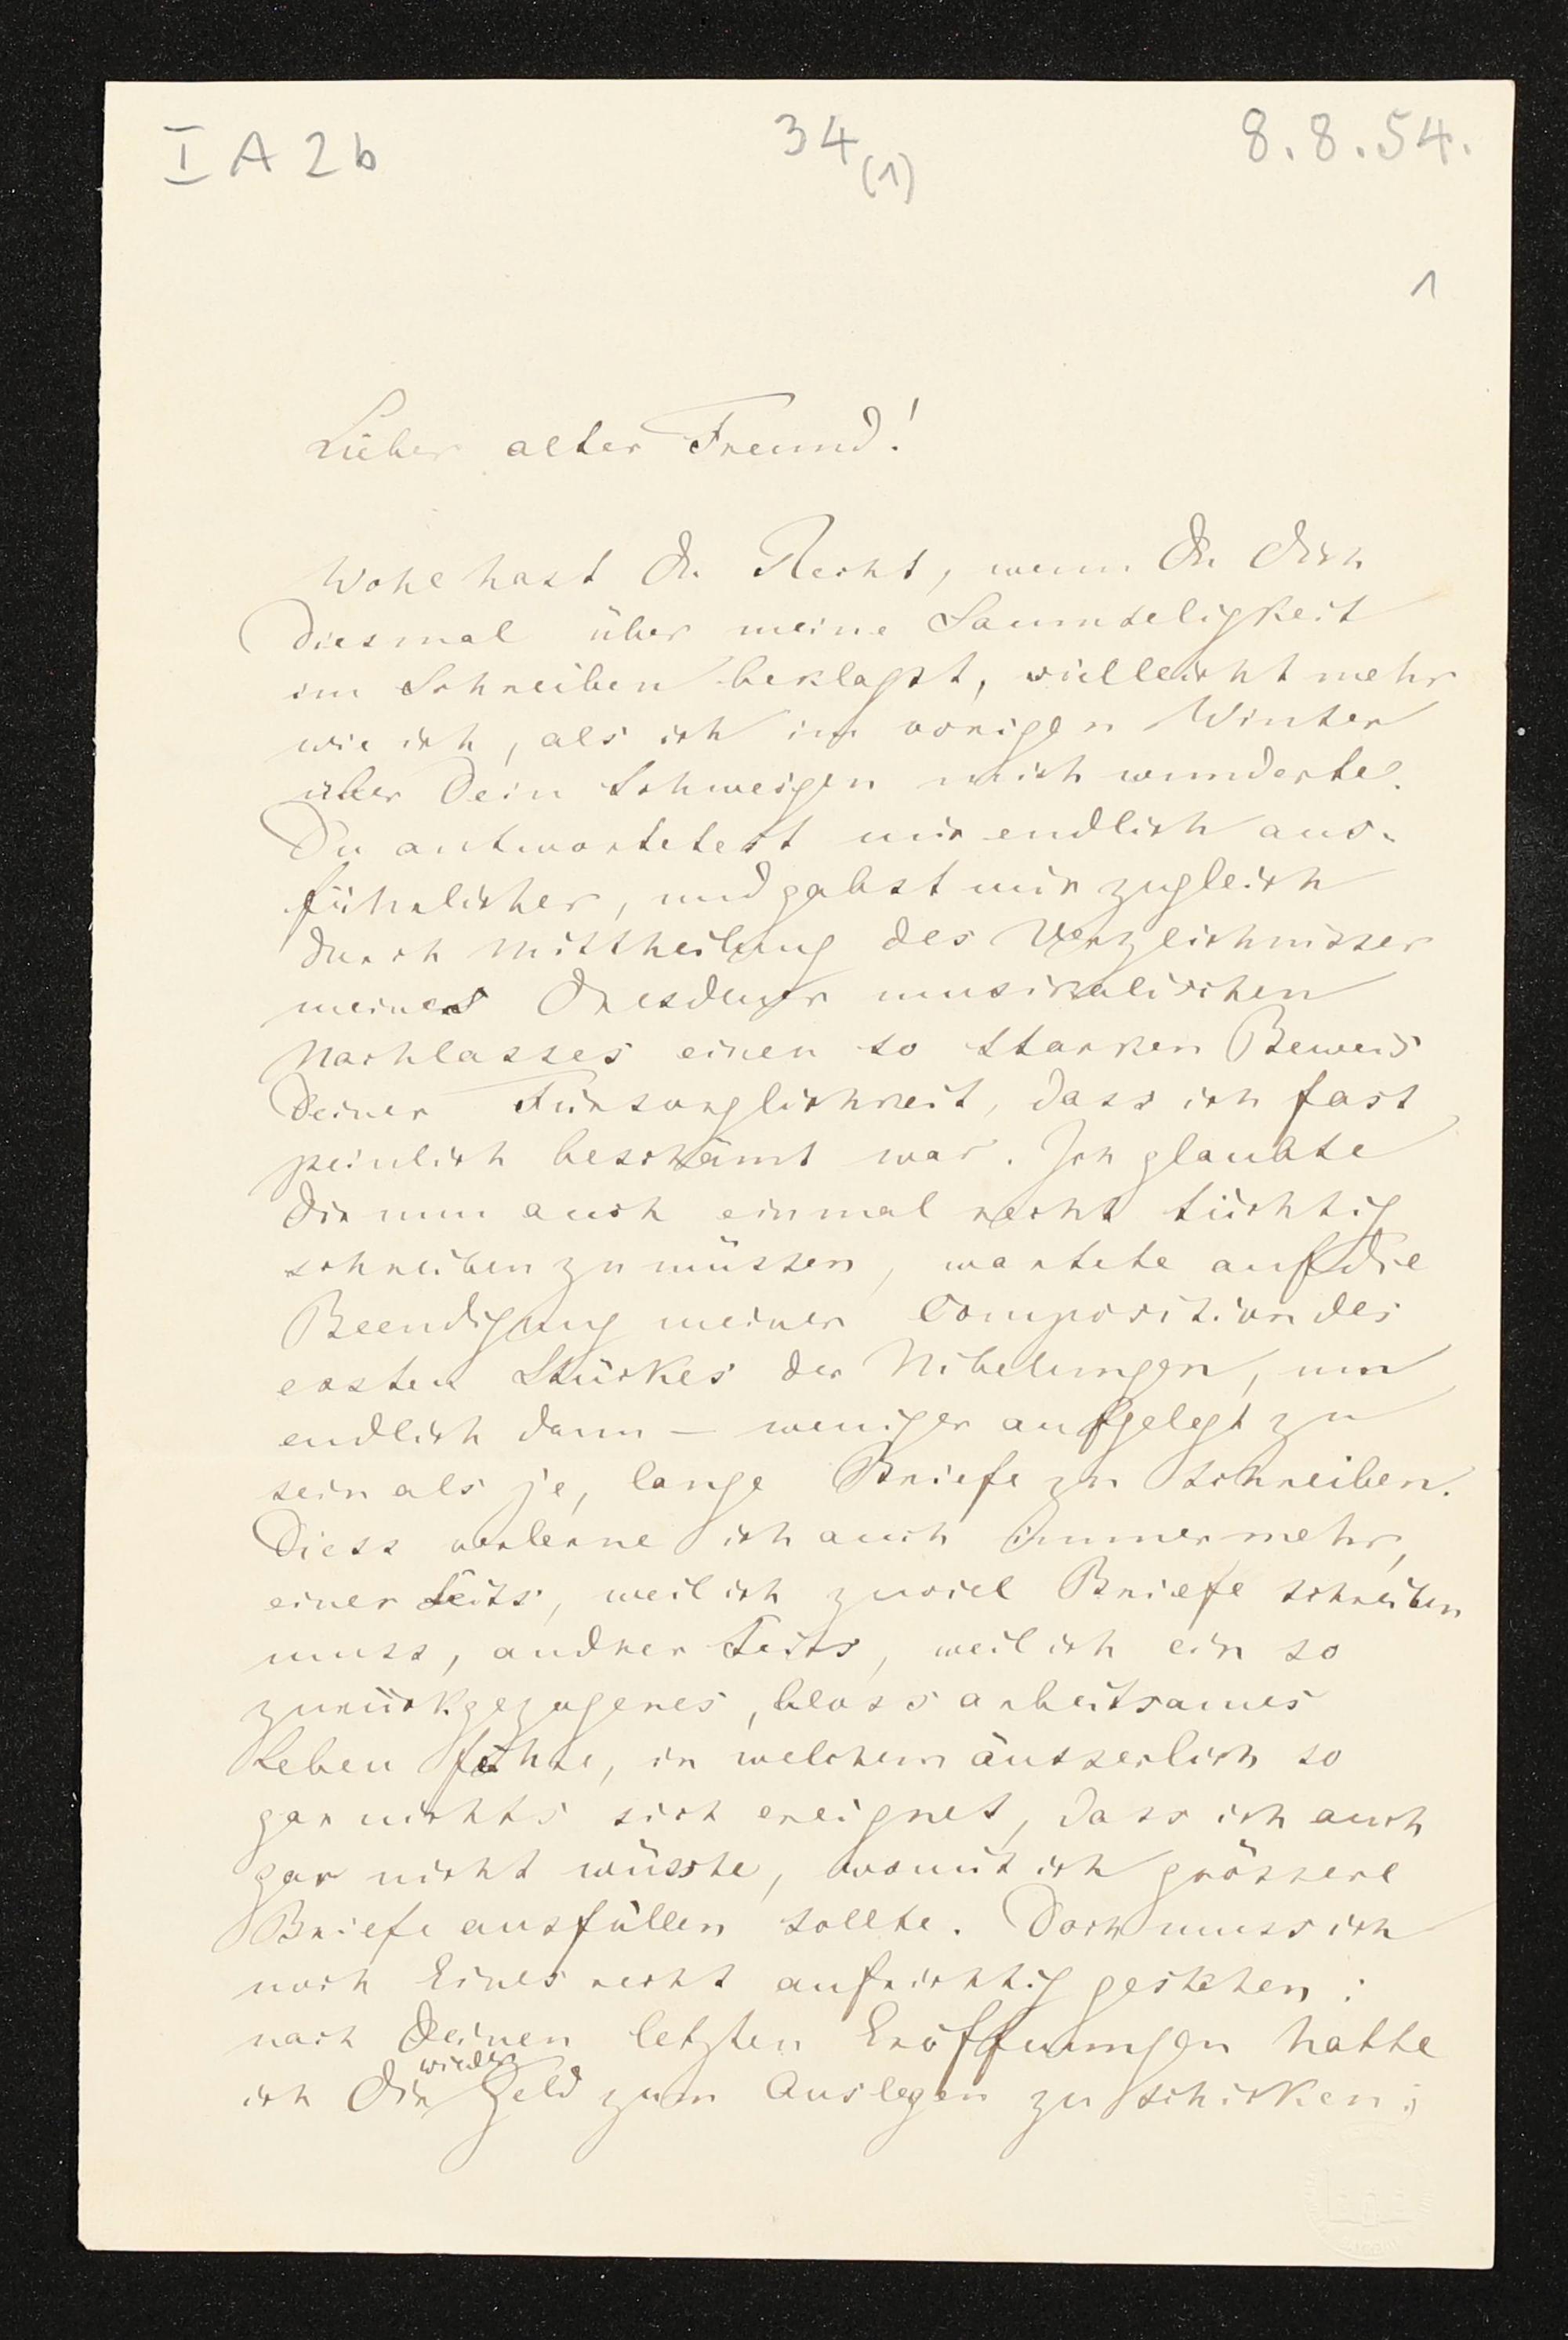 I A 2b
34 (1)
8.8.54.
1
Lieber alter Freund!
Wohl hast Du Recht, wenn Du Dich
diesmal über meine Saumseligkeit
im Schreiben beklagst, vielleicht mehr
wie ich, als ich im vorigen Winter
über Dein Schweigen mich wunderte.
Du antwortetest mir endlich aus-
führlicher, und gabst mir zugleich
durch Mittheilung des Verzeichnisses
meines Dresdener musikalischen
Nachlasses einen so starken Beweis
Deiner Fürsorglichkeit, dass ich fast
peinlich beschämt war. Ich glaubte
Dir nun auch einmal recht tüchtig
schreiben zu müssen, wartete auf die
Beendigung meiner Composition des
ersten Stückes der Nibelungen, um
endlich dann — weniger aufgelegt zu
sein als je, lange Briefe zu schreiben.
Diess verlerne ich auch immer mehr,
einer Seits, weil ich zuviel Briefe schreiben
muss, andrer Seits, weil ich ein so
zurückgezogenes, bloss arbeitsames
Leben führe, in welchem äusserlich so
gar nichts sich ereignet, dass ich auch
gar nicht wüsste, womit ich grössere
Briefe ausfüllen sollte. Doch muss ich
noch Eines recht aufrichtig gestehen:
nach Deinen letzten Eröffnungen hatte
wieder
ich Dir Geld zum Auslegen zu schicken;